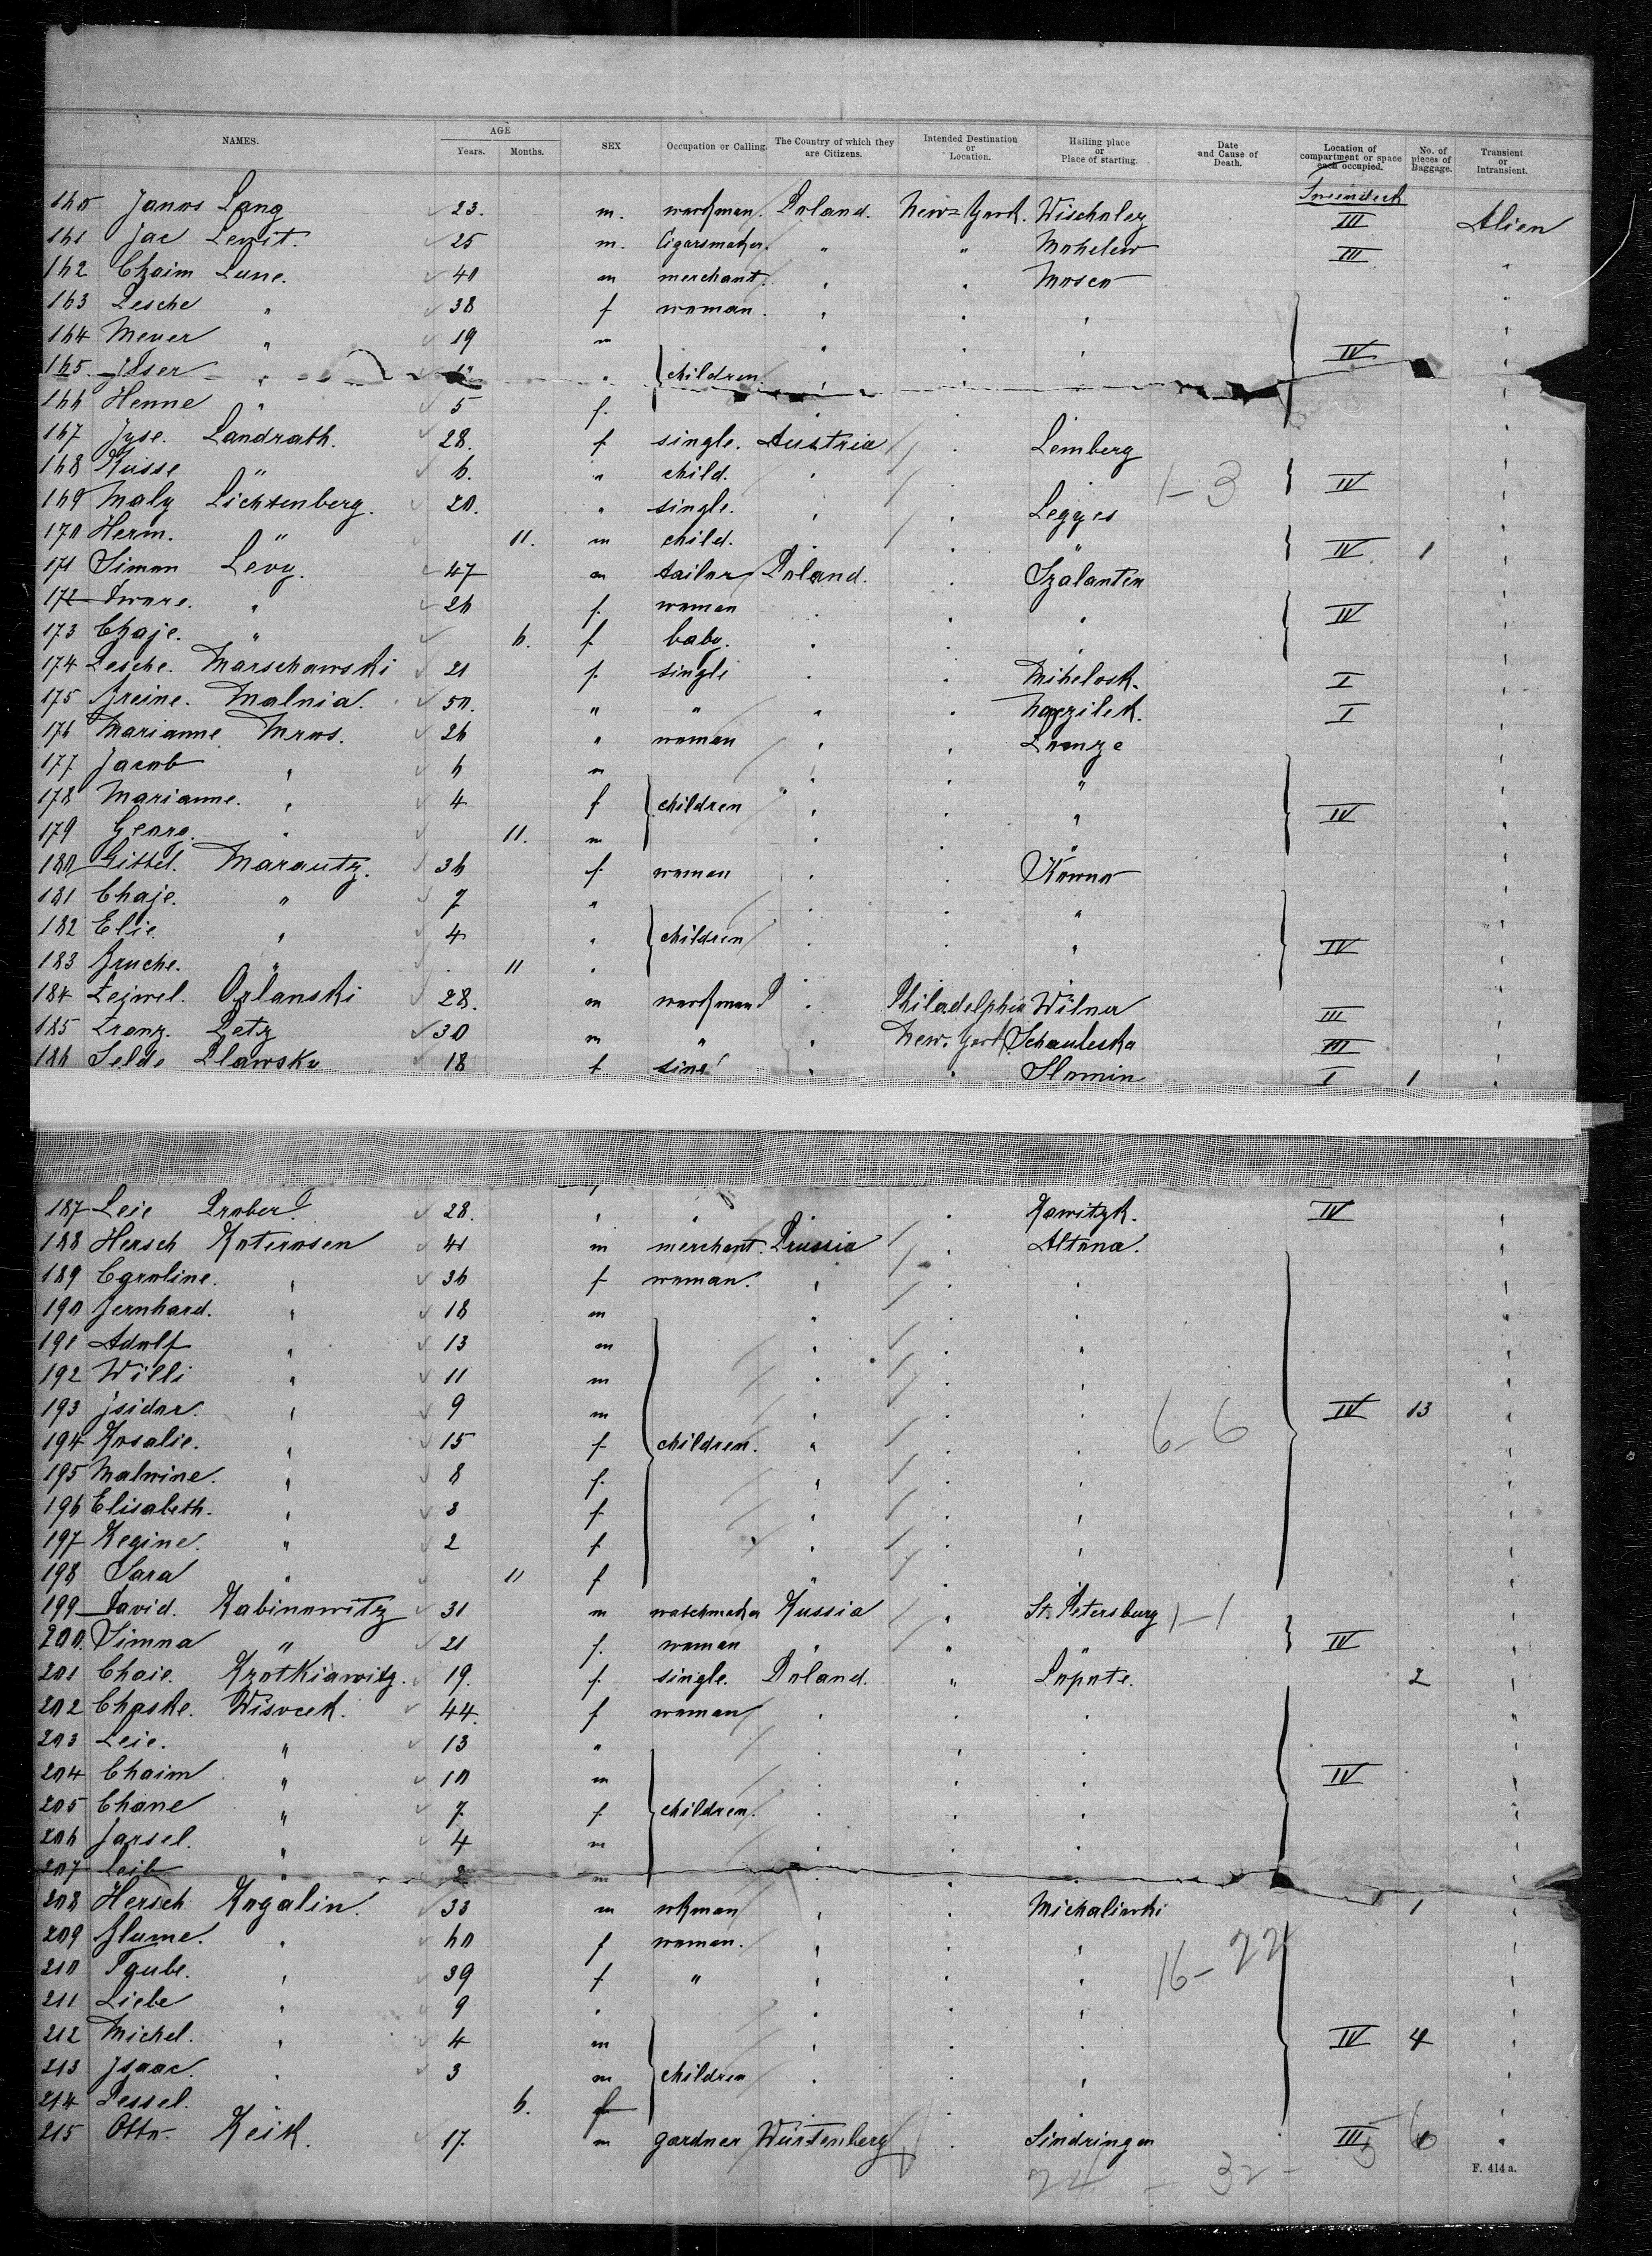 NAMES. AGE Years. Months. SEX Occupation or Calling. The Country of which they are Citizens. Intended Destination or Location. Hailing place or Place of starting. Date and Cause of Death. Location of compartment or space each occupied. No. of pieces of Baggage. Transient or Intransient.
160 Janos Lang 23. m. workman. Poland. New-York. III Alien
161 Jac Lewit. 25 m. Cigarsmaker. " " Mohelew III "
162 Chaim Lune. 40 m merchant. " " Mosco "
163 Pesche " 38 f woman. " " " "
164 Meyer " 19 m " " " IV "
165. " " children " " "
166 Henne " 5 f. " " "
167 Landrath. 28. f single. Austria " Lemberg "
168 " 6. " child. " " " 1-3 IV "
169 Maly Lichtenberg. 20. " single. " " Legyes "
170 Herm. " 11. m child. " " " IV 1 "
171 Simon Levy. 47 m tailor Poland. " "
172 Dware. " 26 f. woman " " " IV "
173 Chaje. " 6. f baby. " " " "
174 Pesche. Marschawski 21 f. single " " I "
175 Breine. Malnia. 50. " " " " I "
176 Marianne Mros. 26 " woman " " Lomze "
177 Jacob " 6 m " " " "
178 Marianne. " 4 f children " " " IV "
179 Georg. " 11. m " " " "
180 Gittel. Marautz. 36 f. woman " " Kowno "
181 Chaje. " 7 " " " " "
182 Elie " 4 " children " " " IV "
183 Bruche. " 11 " " " " "
184 Leiwel. Orlanski 28. m workman " Philadelphia Wilna III "
185 Franz. Petz 30 m " " New-York III "
186 Selde Plawsky 18 f " " Slonim I 1 "
187 Leie 28. " " " " IV "
188 Hersch Roterosen 41 m merchant. Prussia " Altona. "
189 Caroline. " 36 f woman. " " " "
190 Bernhard. " 18 m " " " "
191 Adolf " 13 m " " " "
192 Willi " 11 m " " " "
193 Jsidor. " 9 m " " " 6-6 IV 13 "
194 Rosalie. " 15 f children. " " " "
195 Malwine. " 8 f. " " " "
196 Elisabeth. " 3 f " " " "
197 Regine. " 2 f " " " "
198 Sara " 11 f " " " "
199 David. Rabinowitz 31 m watchmaker Russia " St. Petersburg 1-1 "
200. Simna " 21 f. woman " " " IV "
201 Chaie. Krotkiawitz. 19. f. single. Poland. " 2 "
202 44. f woman " " " "
203 Leie. " 13 " " " " "
204 Chaim " 10 m " " " IV "
205 Chane " 7 f children. " " " "
206 " 4 m " " " "
207 Leib " 2 m " " " "
208 Hersch Rogalin. 33 m wkman " " Michalinski 1 "
209 Blume. " 60 f woman. " " " "
210 Taube. " 39 f " " " " 16-22 "
211 Liebe " 9 " " " " "
212 Michel. " 4 m " " " IV 4 "
213 Jsaac. " 3 m children " " " "
214 Pessel. " 6. f " " " "
215 Otto Keik. 17. m gardner Würtenberg " Sindringen III "
24 - 32 - 5 6
F. 414 a.